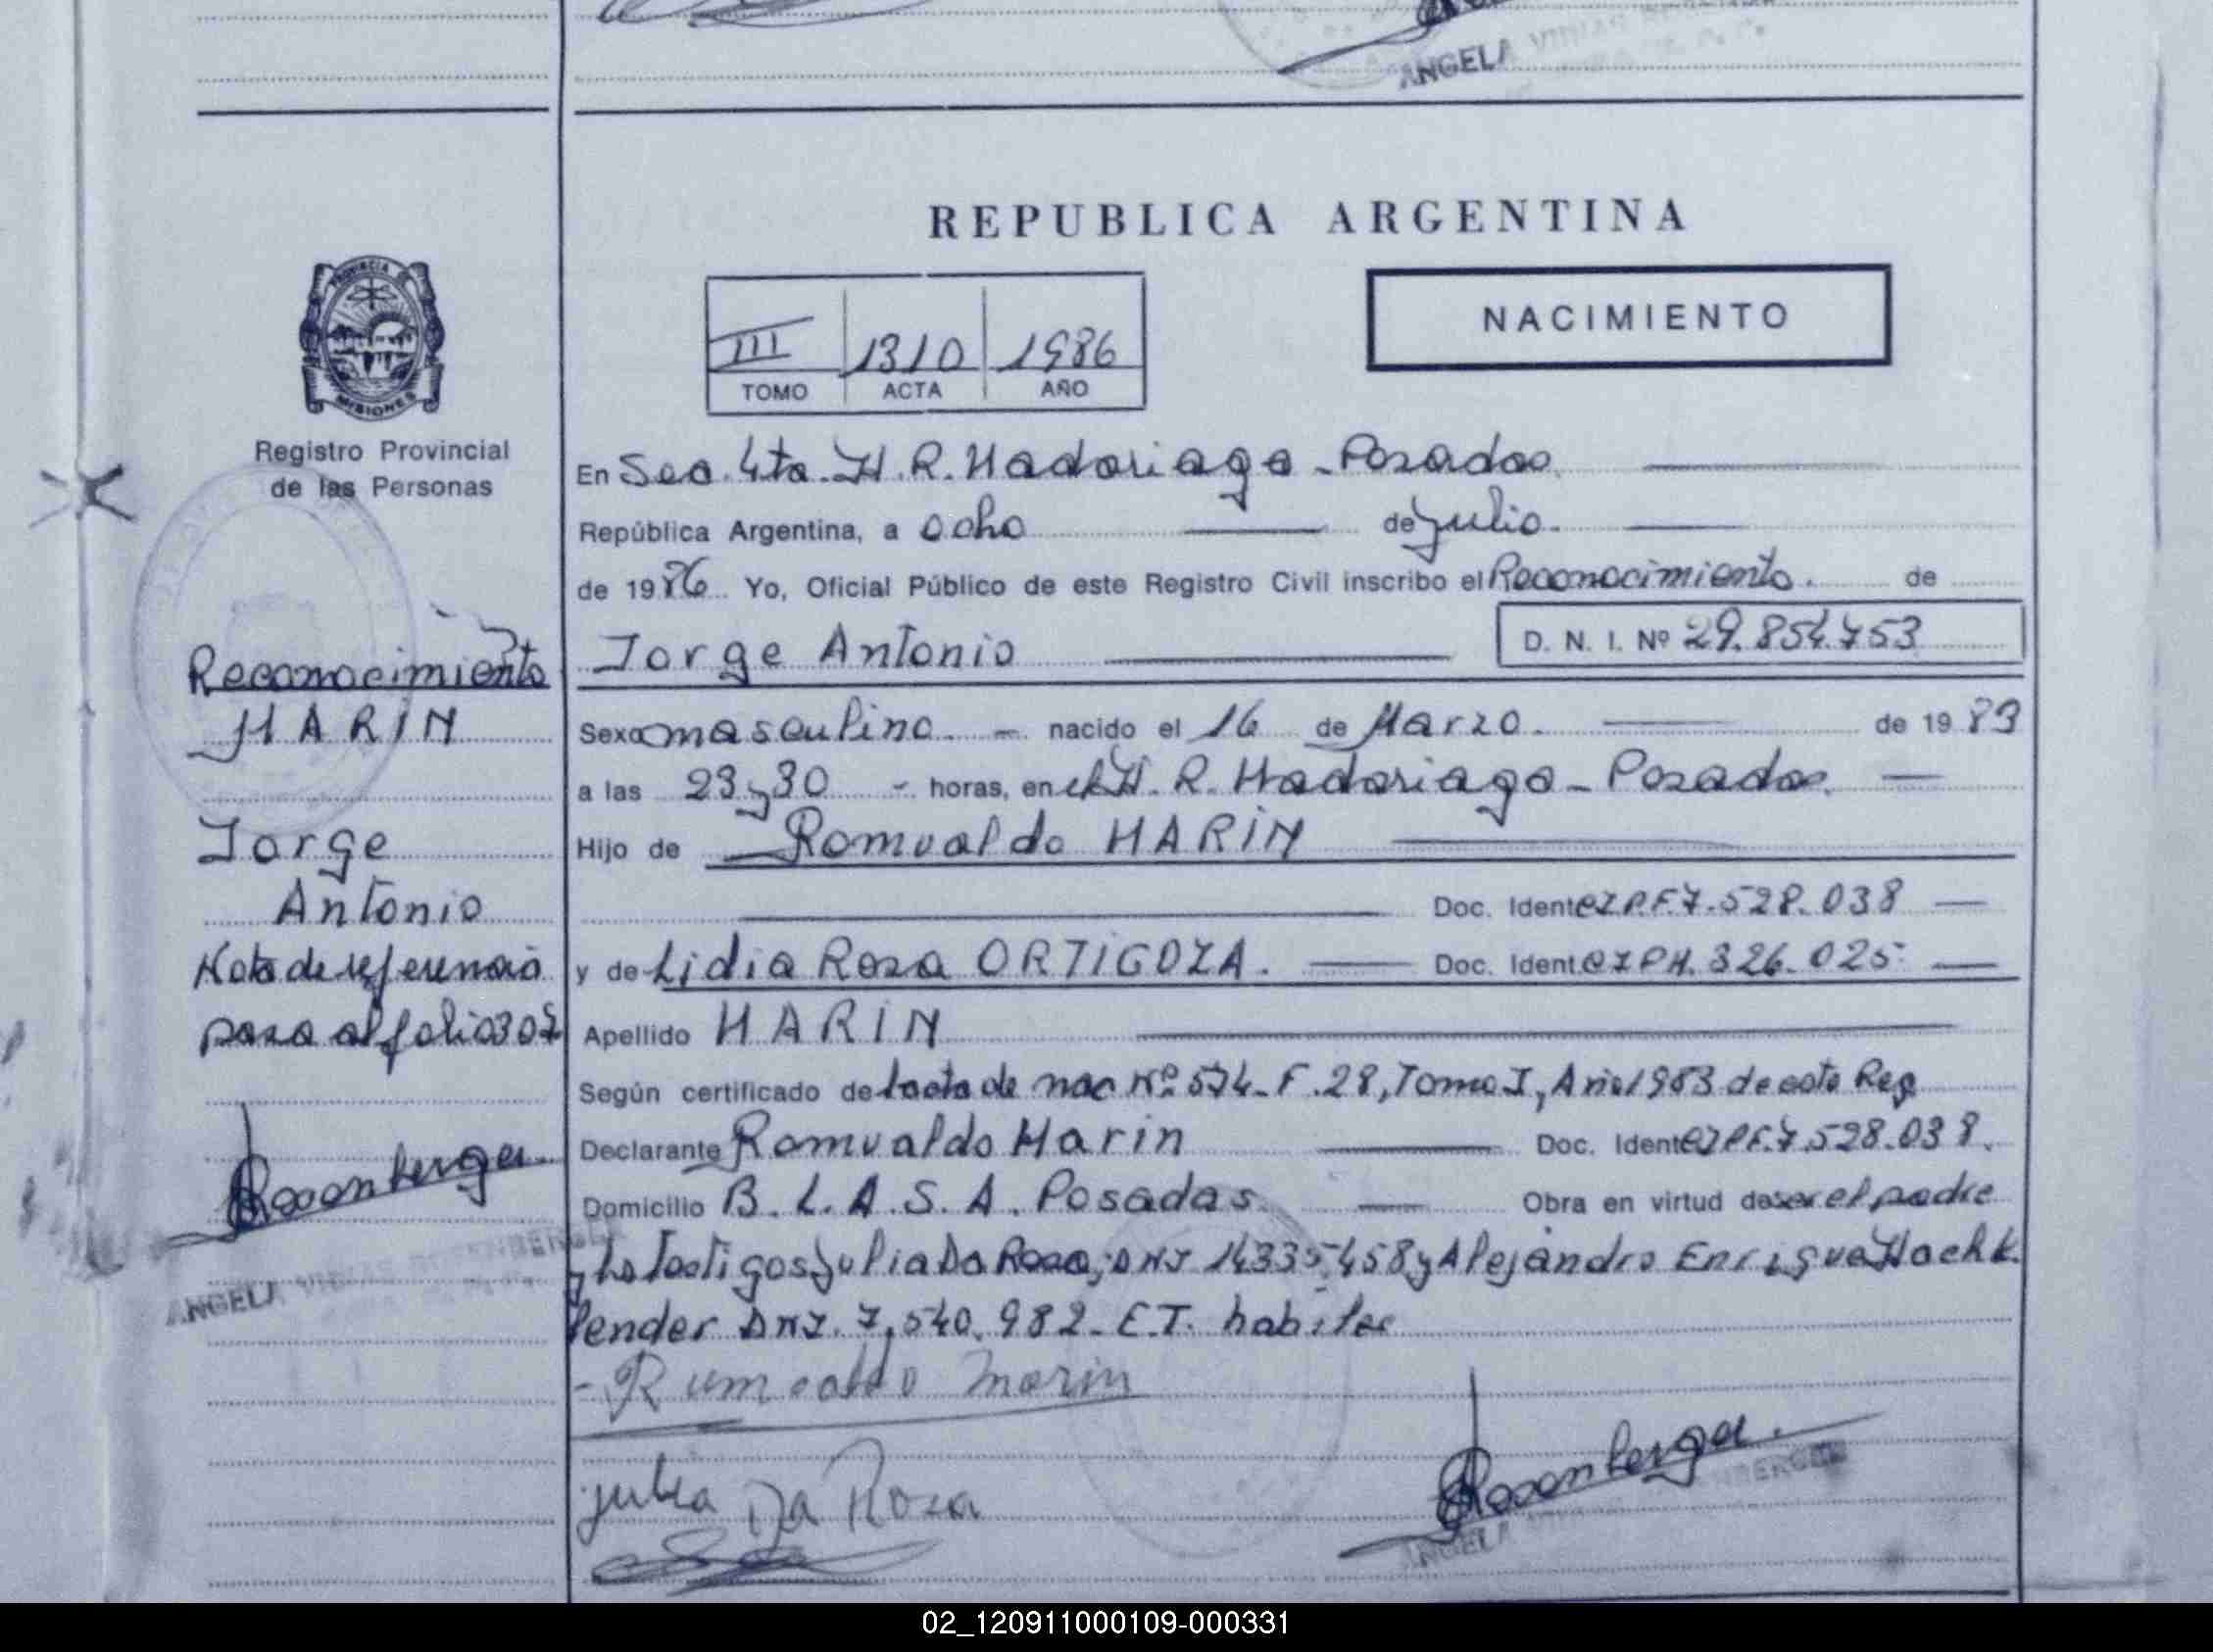 ANGELA
REPUBLICA ARGENTINA
NACIMIENTO
III 1310 1986
TOMO ACTA AÑO
PROVINCIA DE
MISIONES
Registro Provincial
de las Personas
En Sec. 4ta. H. R. Madariaga - Posadas.
República Argentina, a ocho de julio.
de 1986 Yo, Oficial Público de este Registro Civil inscribo el Reconocimiento. de
Jorge Antonio D. N. I. Nº 29.854.753
Reconocimiento
MARIN
Jorge
Antonio
Nota de referencia
pasa al folio 307
Rosenberger
ANGELA
Sexo masculino. nacido el 16 de Marzo. de 1983
a las 23 y 30 horas, en el H. R. Madariaga - Posadas.
Hijo de Romualdo MARIN
Doc. Ident. CIPF. 7.528.038
y de Lidia Rosa ORTIGOZA. Doc. Ident. CIPM. 326.025
Apellido MARIN
Según certificado de acta de nac Nº 574 - F. 28, Tomo I, Año 1983 de este Reg
Declarante Romualdo Marin Doc. Ident. CIPF. 7.528.038.
Domicilio B. L. A. S. A. Posadas Obra en virtud de ser el padre
y Ls Testigos Julia Da Rosa, DNI 14335.458 y Alejandro Enrique
lender DNI. 7.540.982 - E.T. habiles
Rumoaldo Marin
julia Da Rosa
Rosenberger.
ANGELA
02_120911000109-000331